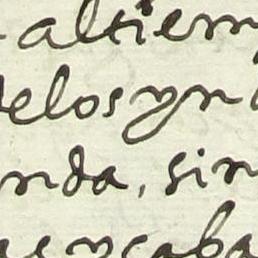 altiem
delos yn
nda, sin
as y caba